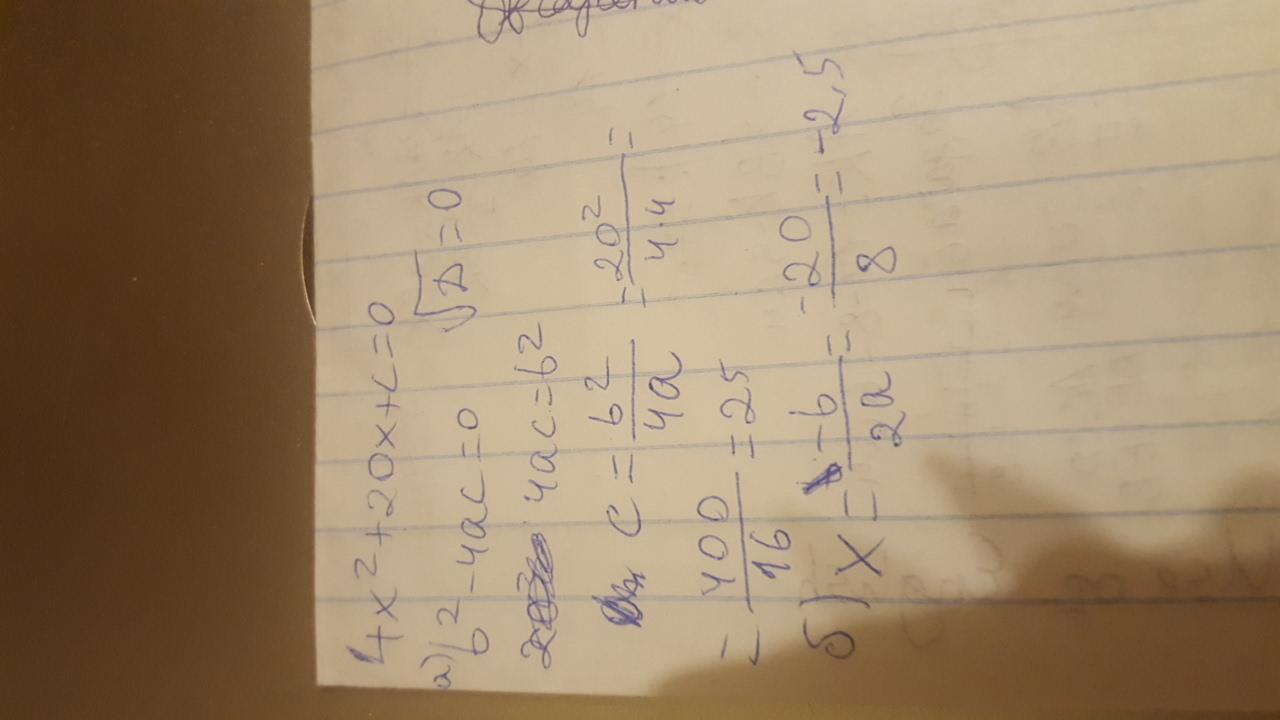 4x²+20x+c=0
а) b²-4ac=0 √D=0
4ac=b²
c=b²/4a=20²/4·4=
=400/16=25
б) x=-b/2a=-20/8=-2,5